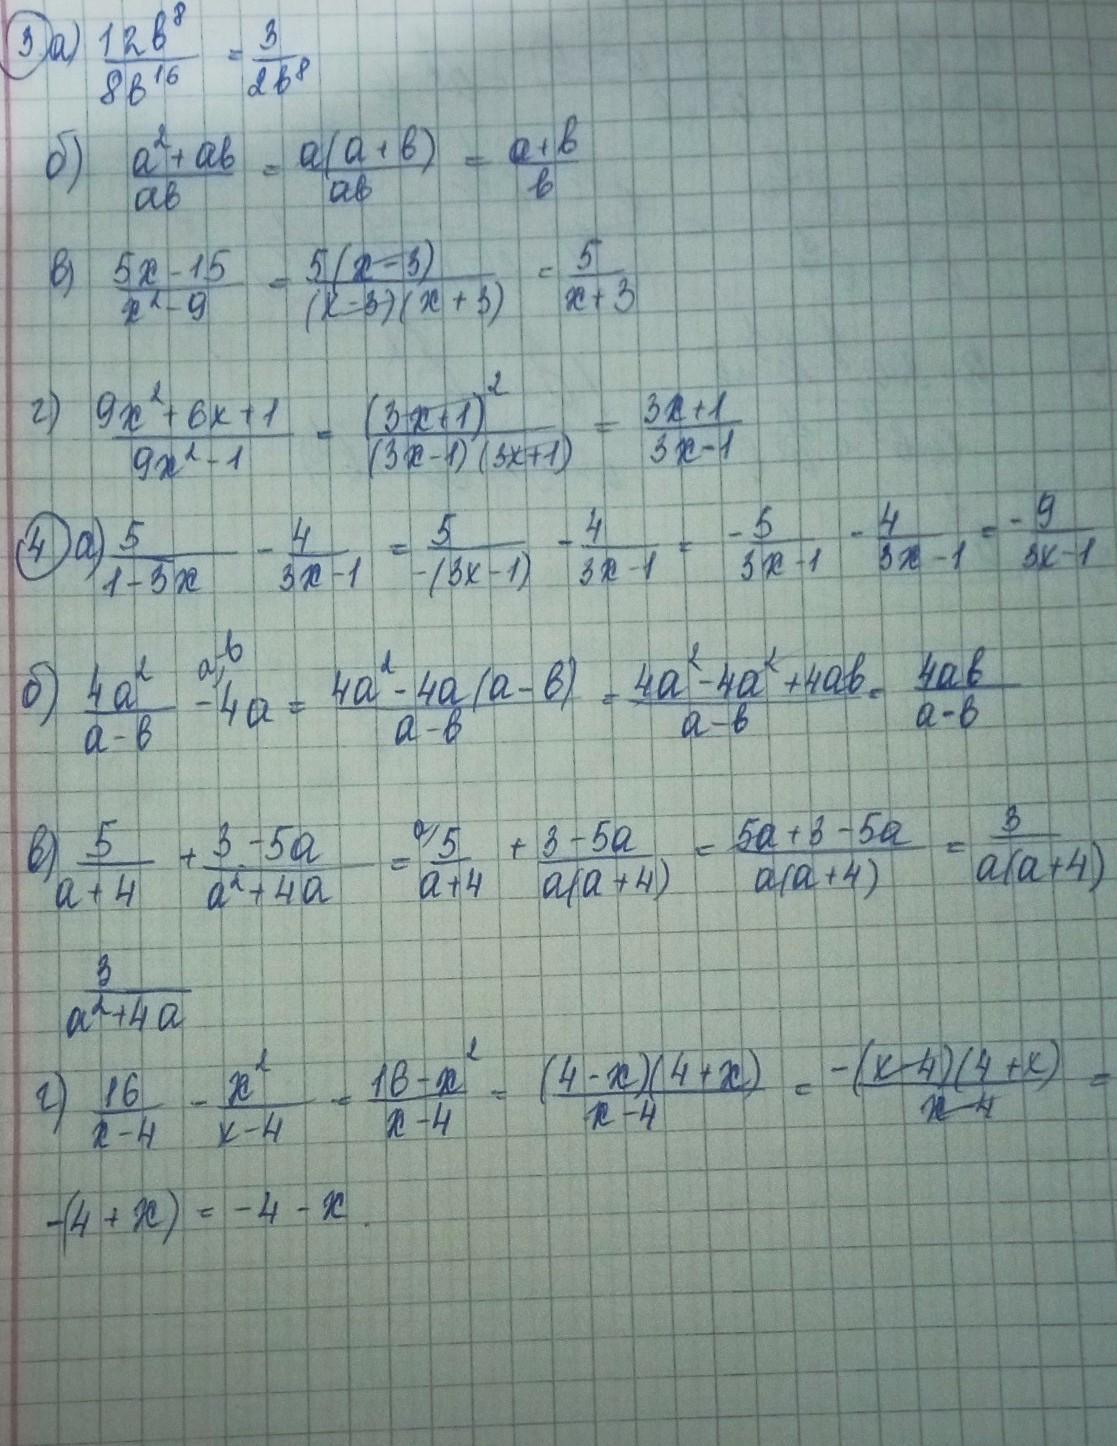 ③ а) 12b⁸/8b¹⁶ = 3/2b⁸
б) (a² + ab)/ab = a(a + b)/ab = (a + b)/b
в) (5x - 15)/(x² - 9) = 5(x - 3)/(x - 3)(x + 3) = 5/(x + 3)
г) (9x² + 6x + 1)/(9x² - 1) = (3x + 1)²/(3x - 1)(3x + 1) = (3x + 1)/(3x - 1)
④ а) 5/(1 - 3x) - 4/(3x - 1) = 5/-(3x - 1) - 4/(3x - 1) = -5/(3x - 1) - 4/(3x - 1) = -9/(3x - 1)
б) 4a²/(a - b) - ᵃ⁻ᵇ⁾4a = (4a² - 4a(a - b))/(a - b) = (4a² - 4a² + 4ab)/(a - b) = 4ab/(a - b)
в) 5/(a + 4) + (3 - 5a)/(a² + 4a) = ᵃ⁾5/(a + 4) + (3 - 5a)/a(a + 4) = (5a + 3 - 5a)/a(a + 4) = 3/a(a + 4)
3/(a² + 4a)
г) 16/(x - 4) - x²/(x - 4) = (16 - x²)/(x - 4) = (4 - x)(4 + x)/(x - 4) = -(x - 4)(4 + x)/(x - 4) =
-(4 + x) = -4 - x.